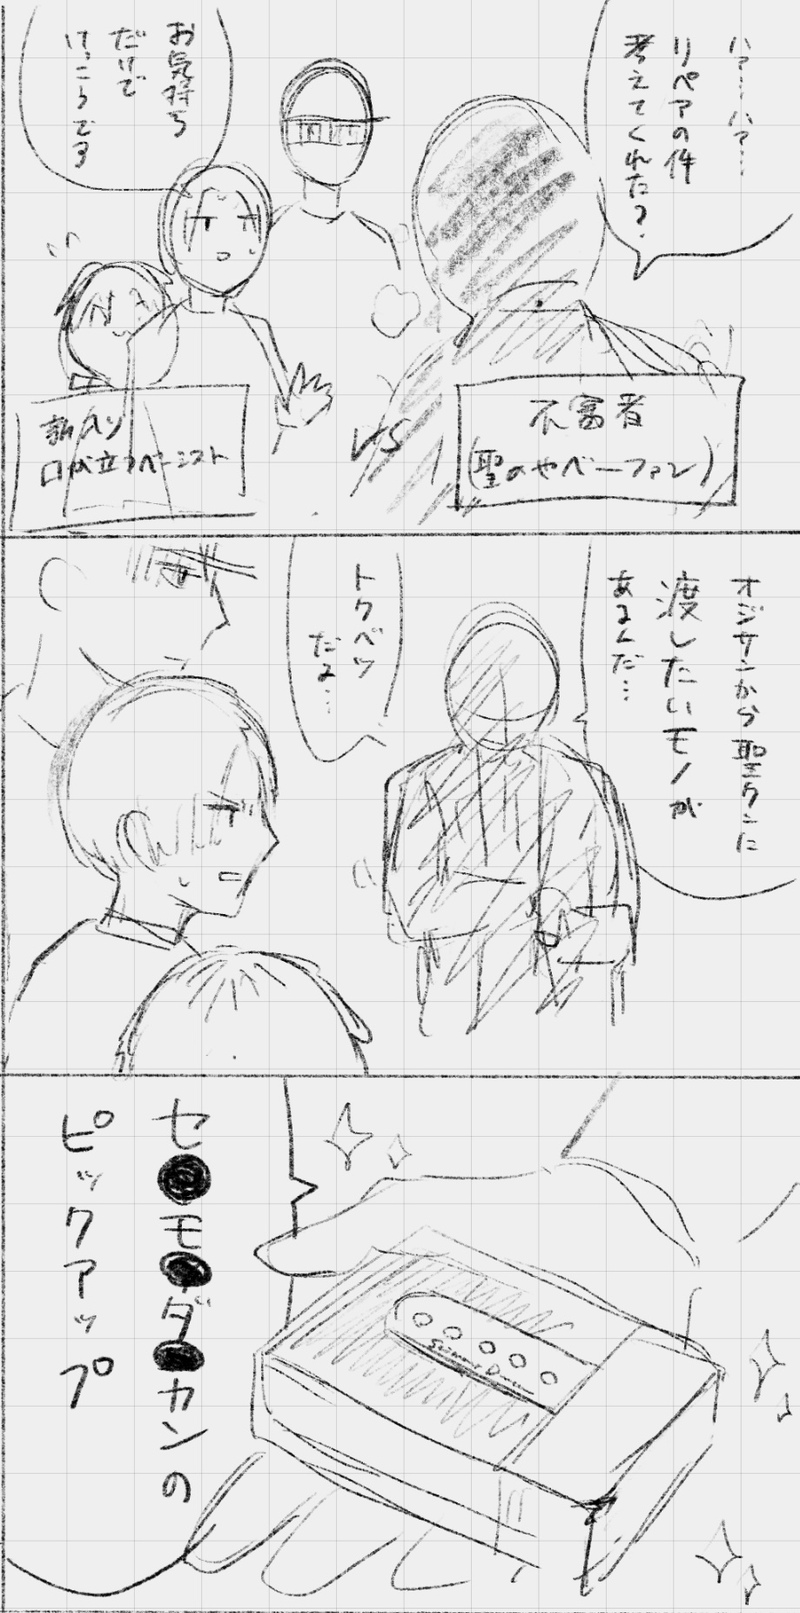 ハァ…ハァ…
リペアの件
考えてくれた?
お気持ち
だけで
けっこうです
口が立つベーシスト
VS
不審者
(聖のやべーファン)
オジサンから聖クンに
渡したいモノが
あるんだ…
トクベツ
だよ…
セ●モ●ダ●カンの
ピックアップ